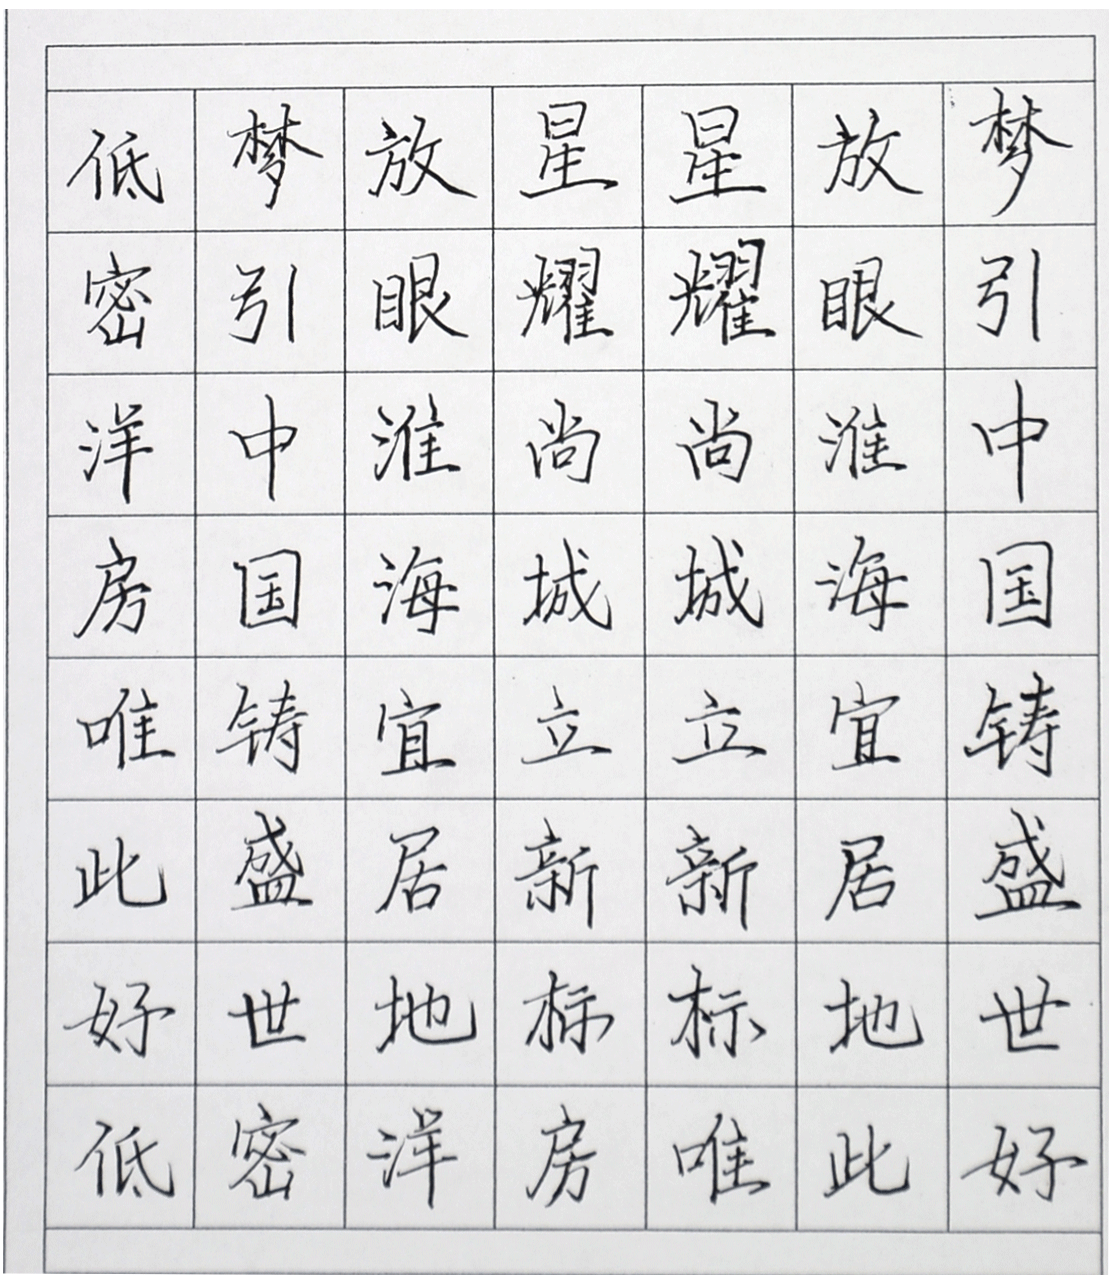 梦引中国铸盛世
放眼淮海宜居地
星耀尚城立新标
星耀尚城立新标
放眼淮海宜居地
梦引中国铸盛世
低密洋房唯此好
低密洋房唯此好